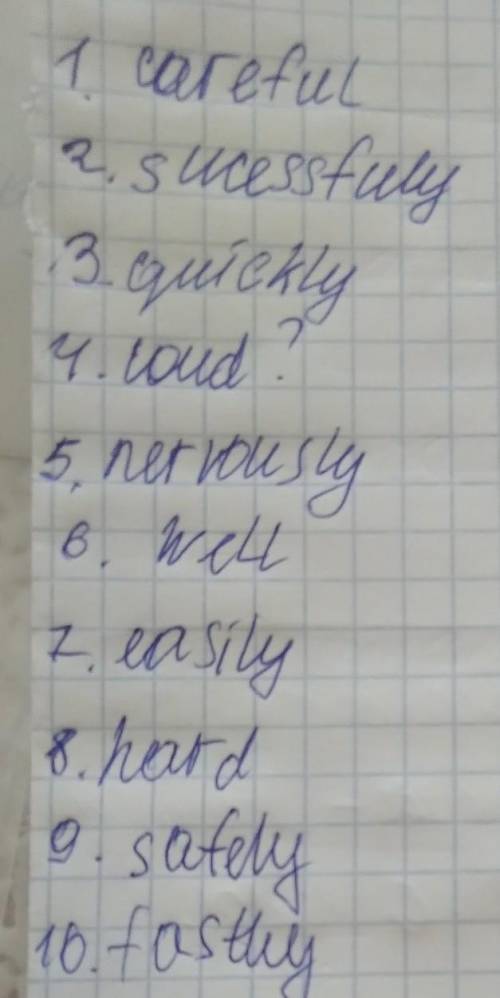 1. careful
2. sucessfuly
3. quickly
4. loud?
5. nervously
6. well
7. easily
8. hard
9. safely
10. fastly